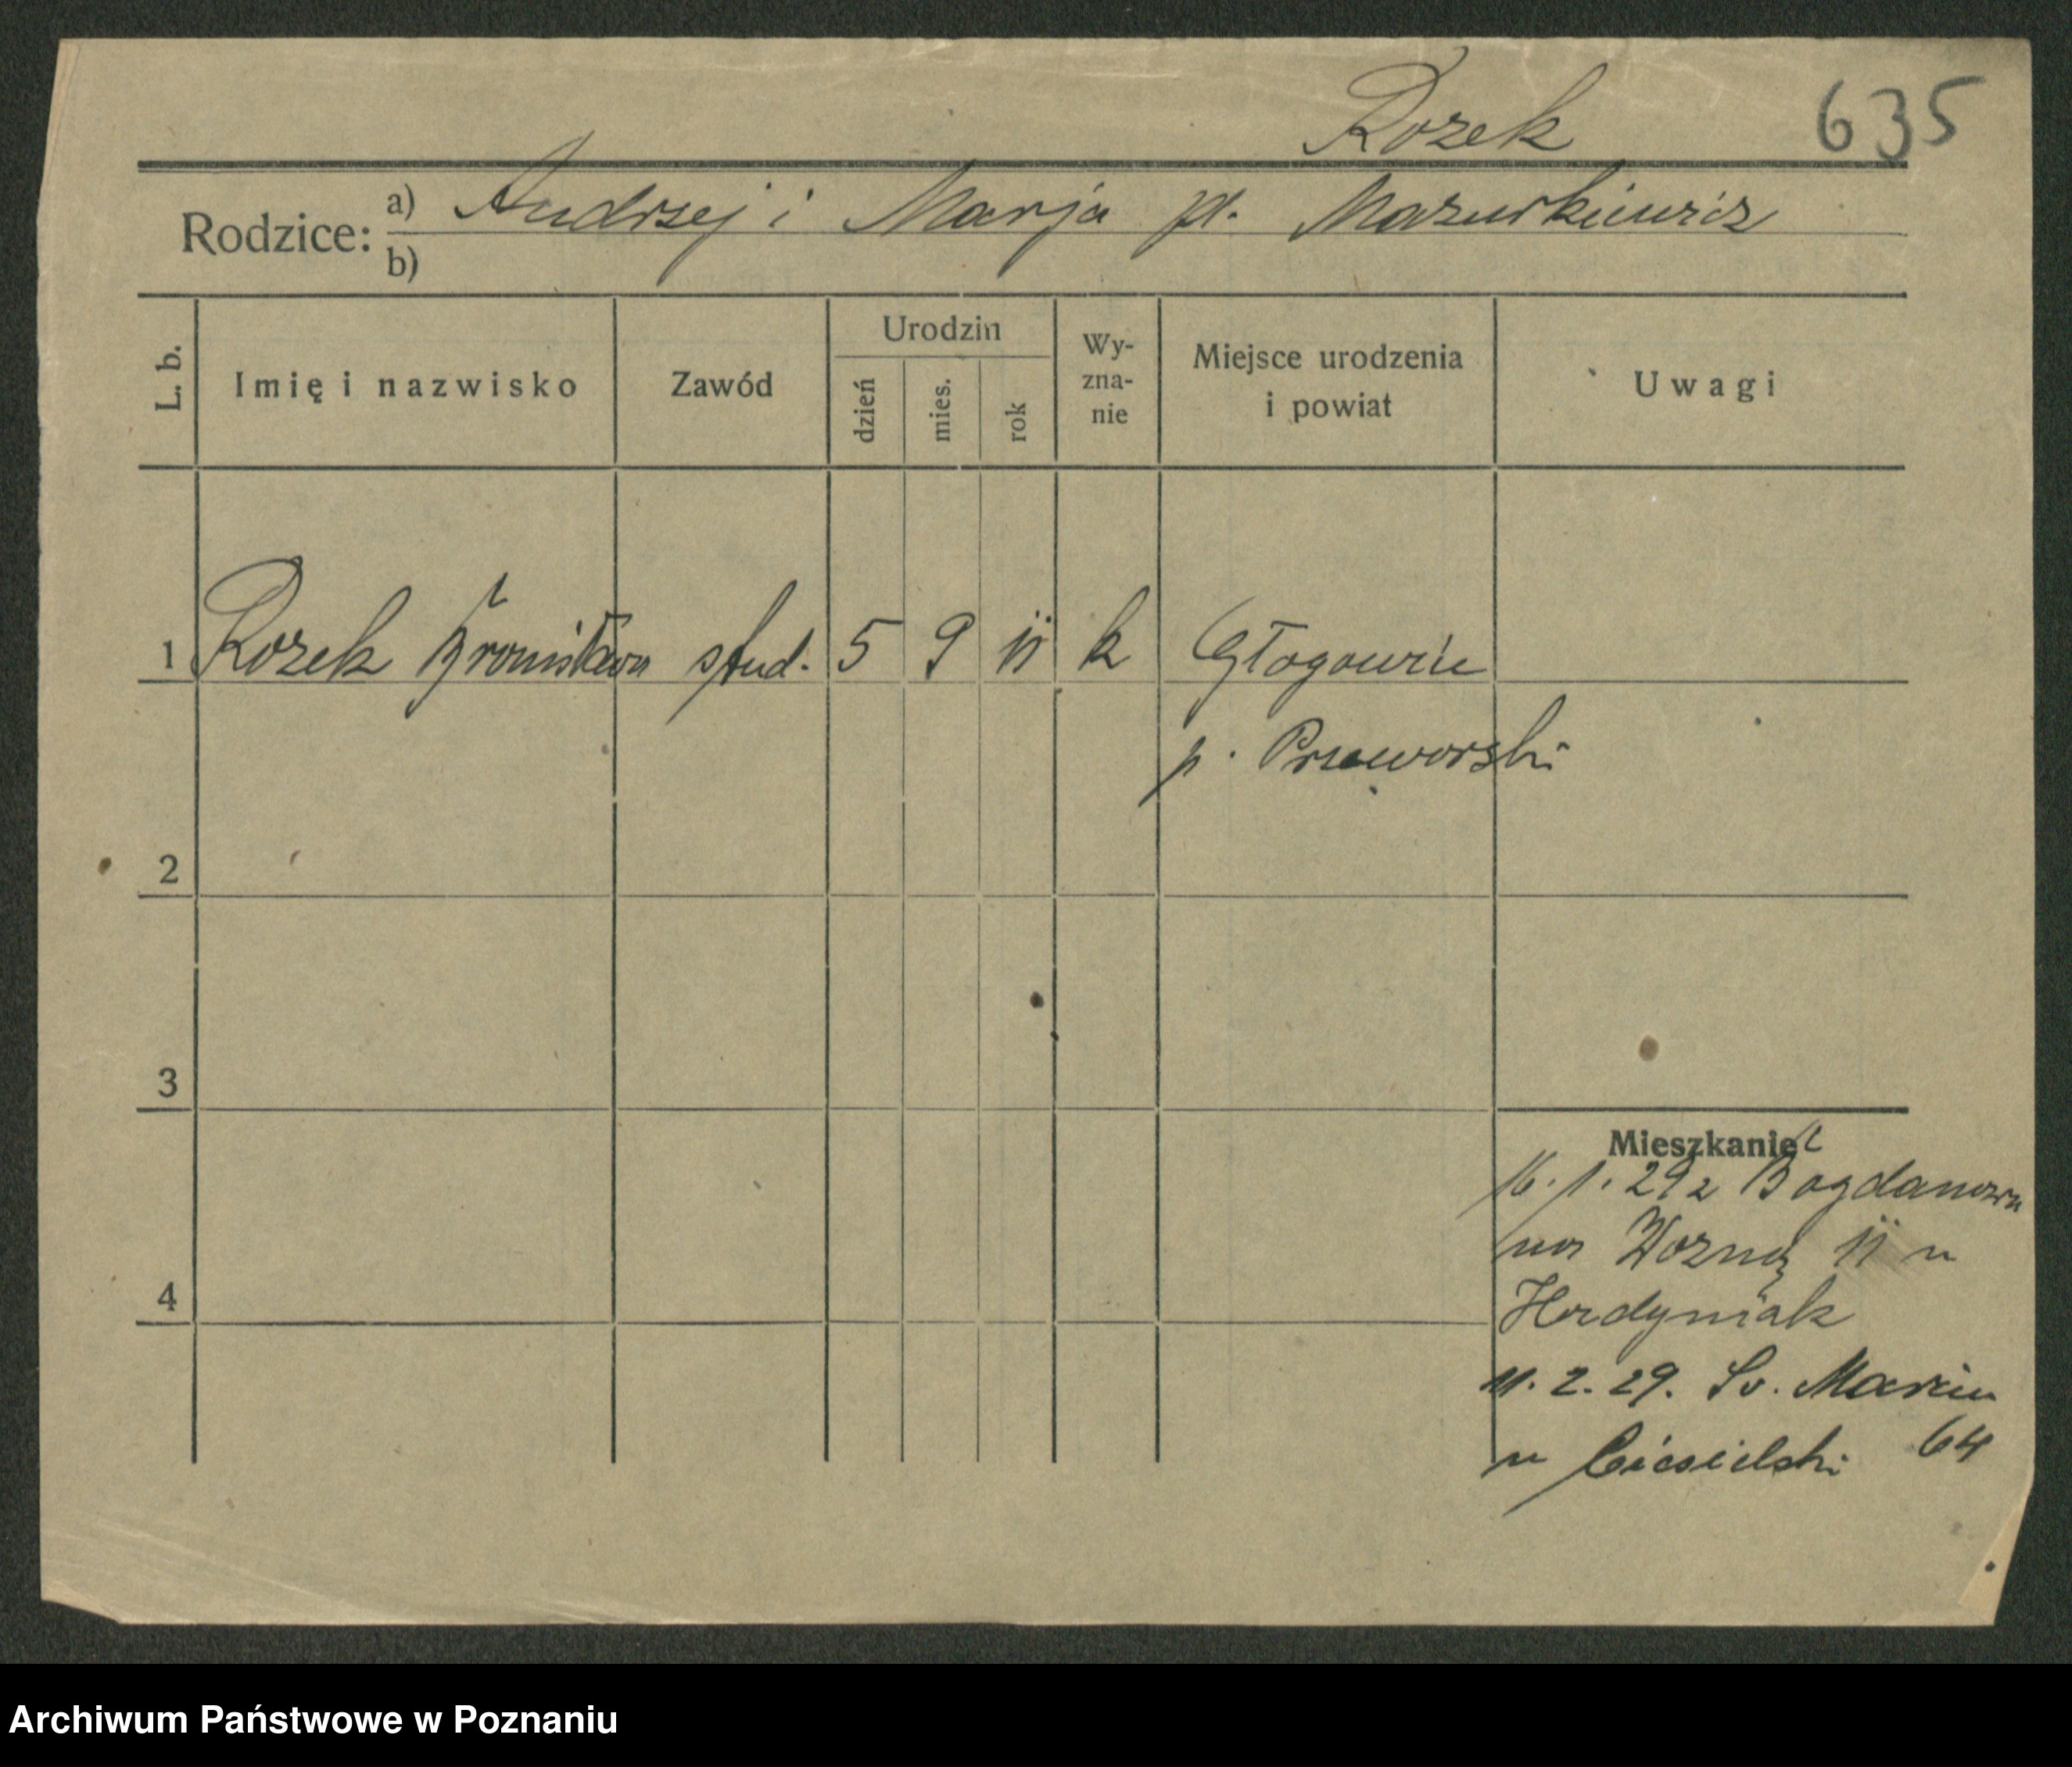 Rozek 635
Rodzice: a) Andrzej i Marja pl. Mazurkiewicz
b)
L. b. Imię i nazwisko Zawód Urodzin dzień mies. rok Wy-zna-nie Miejsce urodzenia i powiat Uwagi
1 Rozek Bronisława stud. 5 9 11 k Głogowie
p. Przeworski
2
3
Mieszkanie
16. 1. 29 z Bogdanowa
na Wozną 11 u
4
Hadyniak
11. 2. 29. Sv. Marcin
u Ciesielski 64
Archiwum Państwowe w Poznaniu